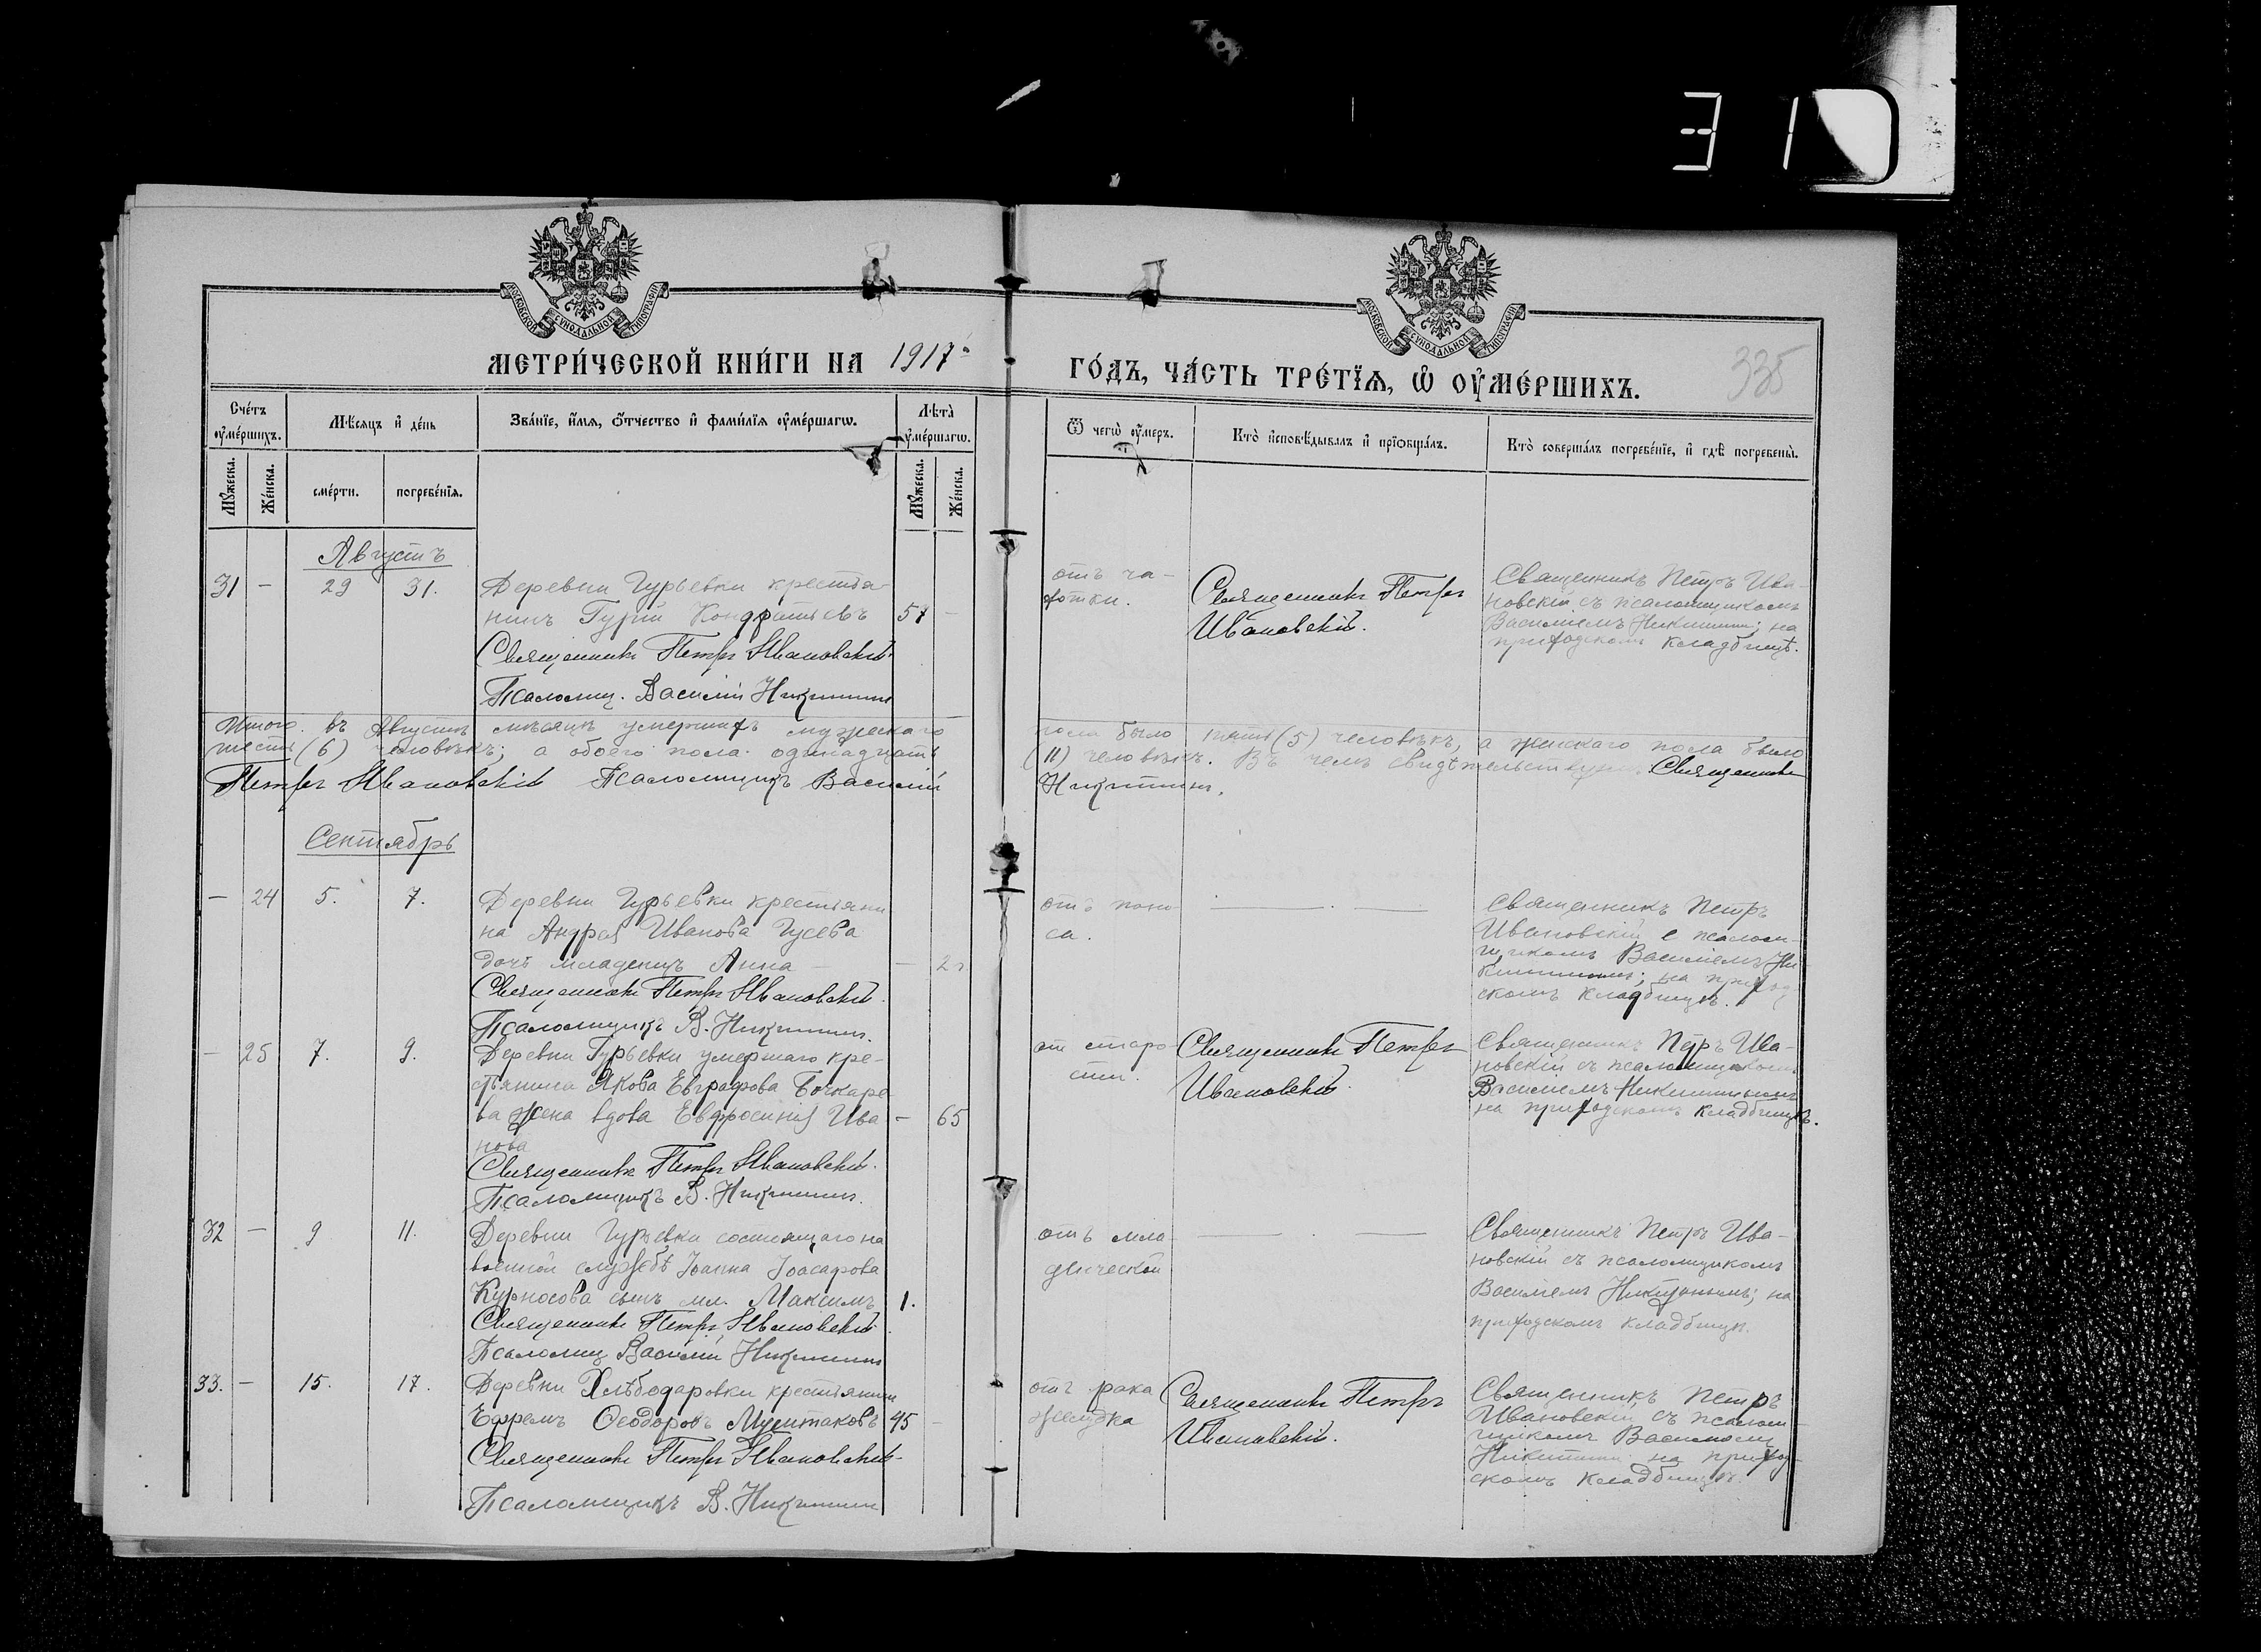 310
МОСКОВСКОЙ СѴНОДАЛЬНОЙ ТИПОГРАФІИ
МОСКОВСКОЙ СѴНОДАЛЬНОЙ ТИПОГРАФІИ
МЕТРИ́ЧЕСКОЙ КНИ́ГИ НА 1917 ГО́ДЪ, ЧА́СТЬ ТРЕ́ТЇѦ, Ѡ҆ ОУ҆МЕ́РШИХЪ.
335
Сче́тъ оу҆ме́ршихъ.
Мѣ́сяцъ и҆ де́нь
Зва́нїе, и҆́мѧ, ѻ҆́тчество и҆ фами́лїѧ оу҆ме́ршагѡ.
Лѣта̀ оу҆ме́ршагѡ.
Ѿ чегѡ̀ оу҆́меръ.
Кто̀ и҆сповѣ́дывалъ и҆ прїѡбща́лъ.
Кто̀ соверша́лъ погребе́нїе, и҆ гдѣ̀ погребены̀.
Мꙋ́жеска.
Же́нска.
сме́рти.
погребе́нїѧ.
Мꙋ́жеска.
Же́нска.
Августъ
31 — 29 31. Деревни Гурьевки крестья-
нинъ Гурій Кондратьевъ 57 —
Священникъ Петръ Ивановскій.
Псаломщ. Василій Никитинъ
отъ ча-
хотки.
Священникъ Петръ
Ивановскій.
Священникъ Петръ Ива-
новскій съ псаломщикомъ
Василіемъ Никитинымъ; на
приходскомъ кладбищѣ.
Итого въ Августѣ мѣсяцѣ умершихъ мужескаго пола было пять (5) человѣкъ, а женскаго пола было
шесть (6) человѣкъ; а обоего пола одинадцать (11) человѣкъ. Въ чемъ свидѣтельствуемъ Священникъ
Петръ Ивановскій Псаломщикъ Василій Никитинъ.
Сентябрь
— 24 5. 7. Деревни Гурьевки крестьяни
на Андрея Иванова Гусева
дочь младенецъ Анна — — 2
Священникъ Петръ Ивановскій.
Псаломщикъ В. Никитинъ.
отъ поно-
са.
Священникъ Петръ
Ивановскій с псалом-
щикомъ Василіемъ Ни-
китинымъ; на приход-
скомъ кладбищѣ.
— 25 7. 9. Деревни Гурьевки умершаго кре-
стьянина Якова Евграфова Бочкаре
ва жена вдова Евфросинія Ива — 65
нова
Священникъ Петръ Ивановскій.
Псаломщикъ В. Никитинъ.
от старо-
сти.
Священникъ Петръ
Ивановскій.
Священникъ Петръ Ива-
новскій съ псаломщикомъ
Василіемъ Никитинымъ
на приходскомъ кладбищѣ.
32 — 9 11. Деревни Гурьевки состоящаго на
военной службѣ Іоанна Іоасафова
Курносова сынъ мл. Максимъ 1.
Священникъ Петръ Ивановскій
Псаломщ Василій Никитинъ
отъ мла-
денческой
Священникъ Петръ Ива-
новскій съ псаломщикомъ
Василіемъ Никитинымъ; на
приходскомъ кладбищѣ.
33. — 15. 17. Деревни Хлѣбодаровки крестьянинъ
Ефремъ Ѳеодоровъ 45 —
Священникъ Петръ Ивановскій.
Псаломщикъ В. Никитинъ
отъ рака
желудка
Священникъ Петръ
Ивановскій.
Священникъ Петръ
Ивановскій съ псалом-
щикомъ Василіемъ
Никитинымъ на приход-
скомъ кладбищѣ.